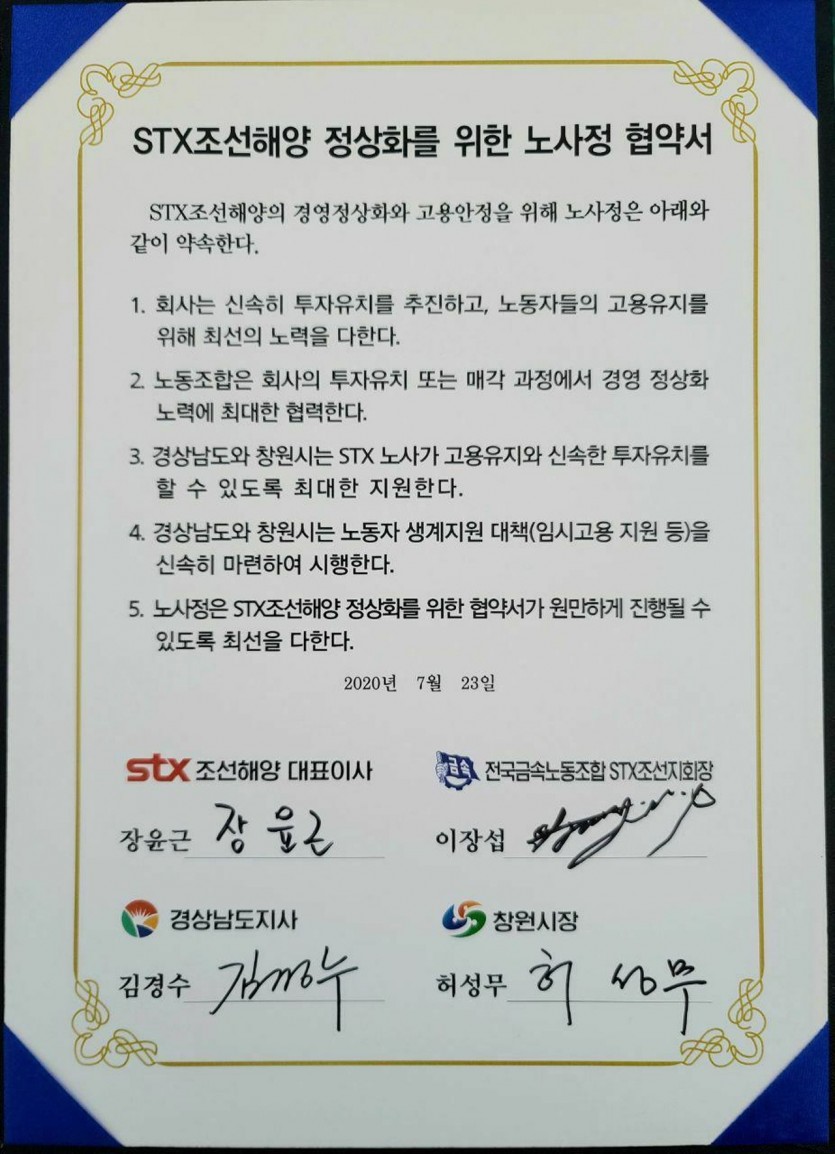 STX조선해양 정상화를 위한 노사정 협약서
STX조선해양의 경영정상화와 고용안정을 위해 노사정은 아래와
같이 약속한다.
1. 회사는 신속히 투자유치를 추진하고, 노동자들의 고용유지를
위해 최선의 노력을 다한다.
2. 노동조합은 회사의 투자유치 또는 매각 과정에서 경영 정상화
노력에 최대한 협력한다.
3. 경상남도와 창원시는 STX 노사가 고용유지와 신속한 투자유치를
할 수 있도록 최대한 지원한다.
4. 경상남도와 창원시는 노동자 생계지원 대책(임시고용 지원 등)을
신속히 마련하여 시행한다.
5. 노사정은 STX조선해양 정상화를 위한 협약서가 원만하게 진행될 수
있도록 최선을 다한다.
2020년 7월 23일
stx 조선해양 대표이사
장윤근 장윤근
금속 전국금속노동조합 STX조선지회장
이장섭
경상남도지사
김경수 김경수
창원시장
허성무 허성무